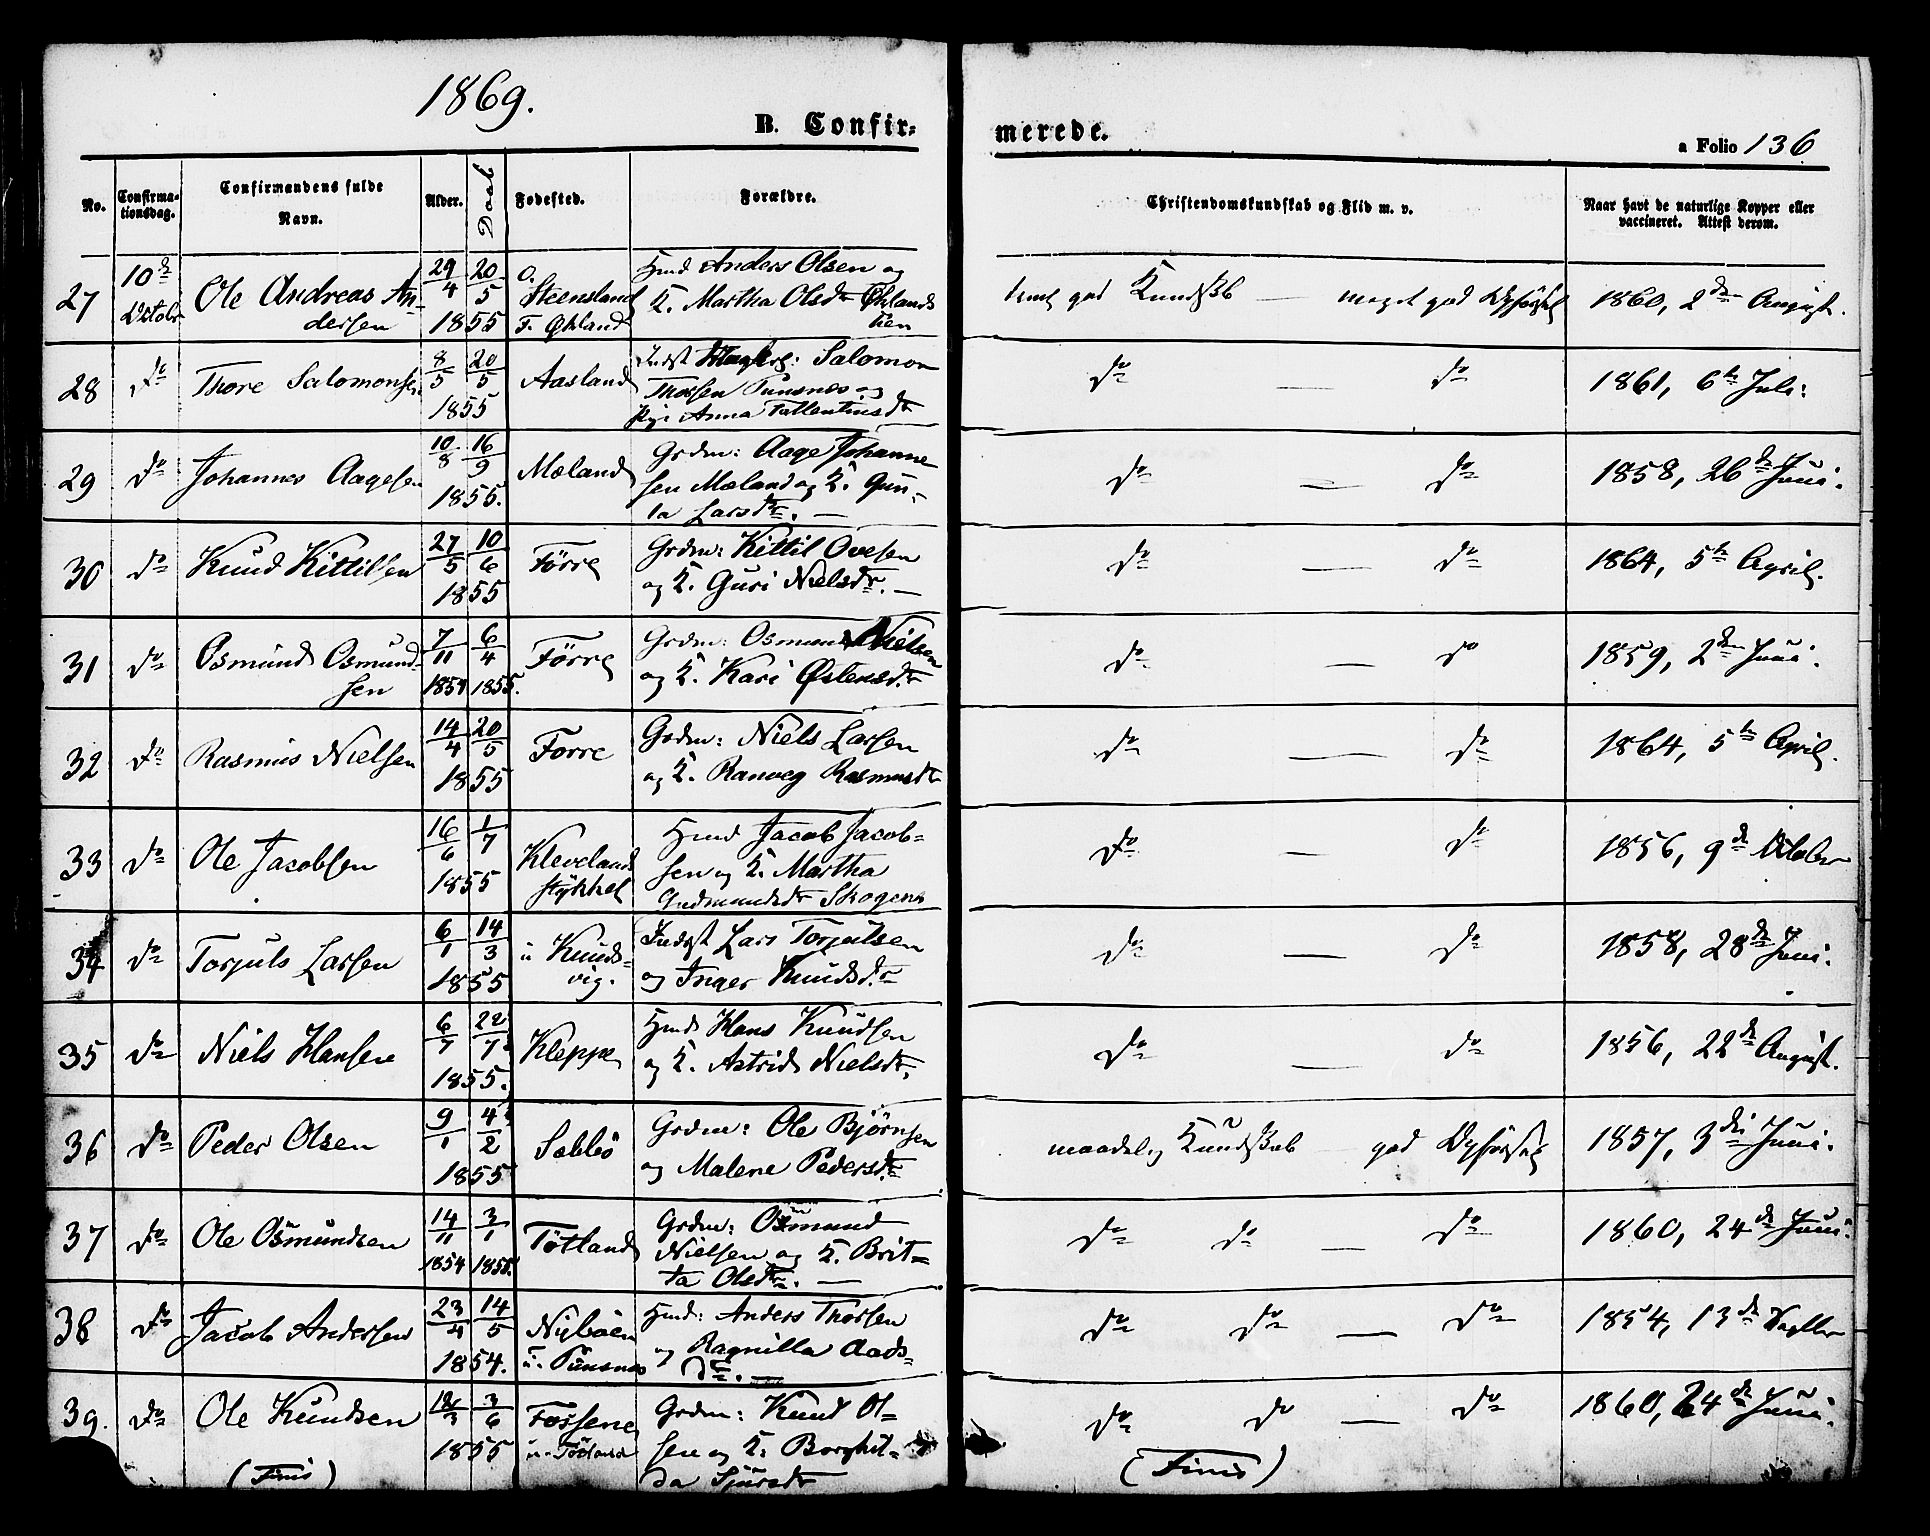 1869.
B. Confirmerede.
a Folio 136
No. Confirmationsdag. Confirmandens fulde Navn. Alder. Daab Fødested. Forældre. Christendomskundskab og Flid m. v. Naar havt de naturlige Kopper eller vaccineret. Attest derom.
27 10de Octobr Ole Andreas Andersen 29/4 20/5 1855 O. Steensland F. Økland Huusd Anders Olsen og K. Martha Olsdtr Øklands Kundskb meget god 1860, 2den August.
28 do Thore Salomonsen 8/5 20/5 1855 Aasland Indst Salomon Thorsen Punsnes og Pige Anna Tallentinsdtr do — do 1861, 6te Juli:
29 do Johannes Aagesen 10/8 16/9 1855. Mæland Grdm: Aage Johannesen Mæland og K. Gunla Larsdtr. — do — do 1858, 26de Juni.
30 do Knud Kittilsen 27/5 10/6 1855 Förre Grdm: Kittil Ovesen og K. Guri Nielsdtr. — do — do 1864, 5te April.
31 do Osmund Osmundsen 7/11 6/4 1854 1855. Förre Grdm: Osmund Nielsen og K. Kari Østensdtr do — do 1859, 2den Juni.
32 do Rasmus Nielsen 14/4 20/5 1855 Forre Grdm: Niels Larsen og K. Ranveg Rasmusdtr do — do 1864, 5te April.
33 do Ole Jacobsen 16/6 1/7 1855 Kleveland stykket Huusd Jacob Jacobsen og K. Martha Gudmundsdtr Skogene do — do 1856, 9de Octobr
34 do Torjuls Larsen 6/1 14/3 1855 u Knudsvig. Indst Lars Torjulsen og Inger Knudsdtr do — do 1858, 28de Juni.
35 do Niels Hansen 6/7 22/7 1855. Kleppe Huusd Hans Knudsen og K. Astrid Nielsdtr. do — do 1856, 22de August.
36 do Peder Olsen 9/1 4/2 1855 Sæbbö Grdm: Ole Bjørnsen og Malene Pedersdtr maadelig Kundskab god 1857, 3die Juni.
37 do Ole Osmundsen 14/11 3/1 1854 1855. Totland Grdm: Osmund Nielsen og K. Britta Olsdtr. — do do — do 1860, 24de Juni.
38 do Jacob Andersen 23/4 14/5 1854. Nyböen u. Punsnes Huusd: Anders Thorsen og Ragnilla Aadsdtr. do do — do 1854, 13de
39. do Ole Knudsen 3/6 1855 Fossene u. Totland Grdm: Knud Olsen og K. Borghilda Sjursdtr do do — do 1860, 24de Juni.
(Finis) (Finis)